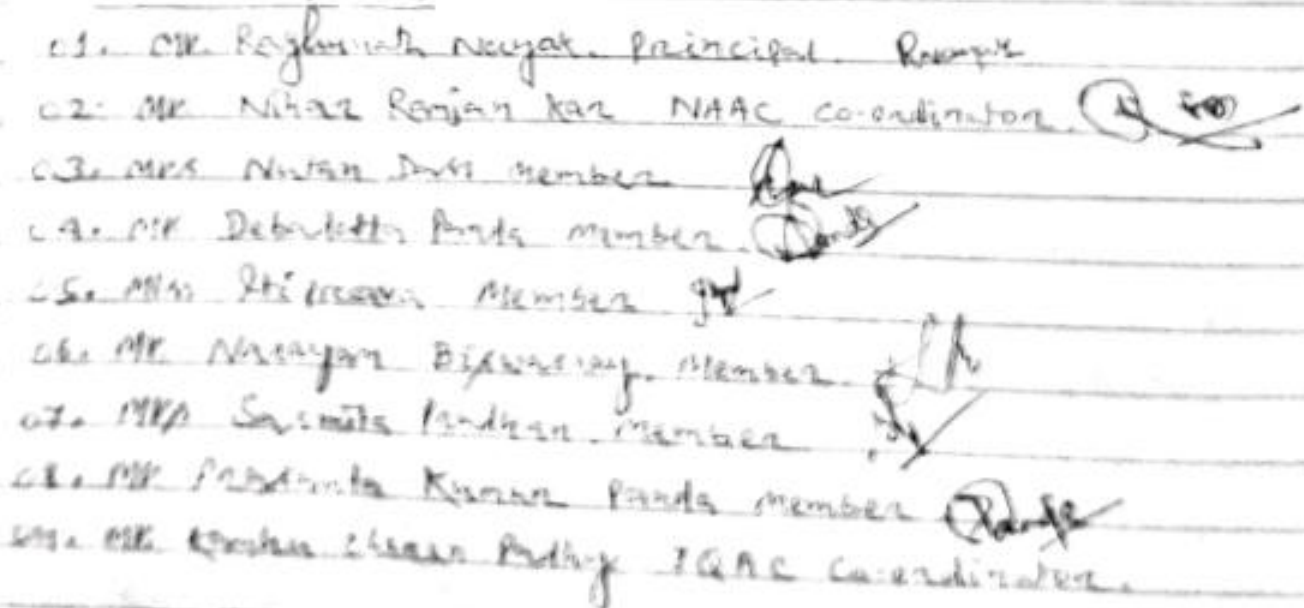 01. Mr. Raghunath Nayak. Principal.
02. Mr Nihar Ranjan Kar NAAC Co-ordinator.
03. Mrs Nutan Dash Member
04. Mr Debadatta Panda Member.
05. Miss Member
06. Mr. Narayan Member.
07. Mrs Sasmita Pradhan. Member
08. Mr. Prasanta Kumar Panda Member Panda
09. Mr. Charan Padhy IQAC Co-ordinator.